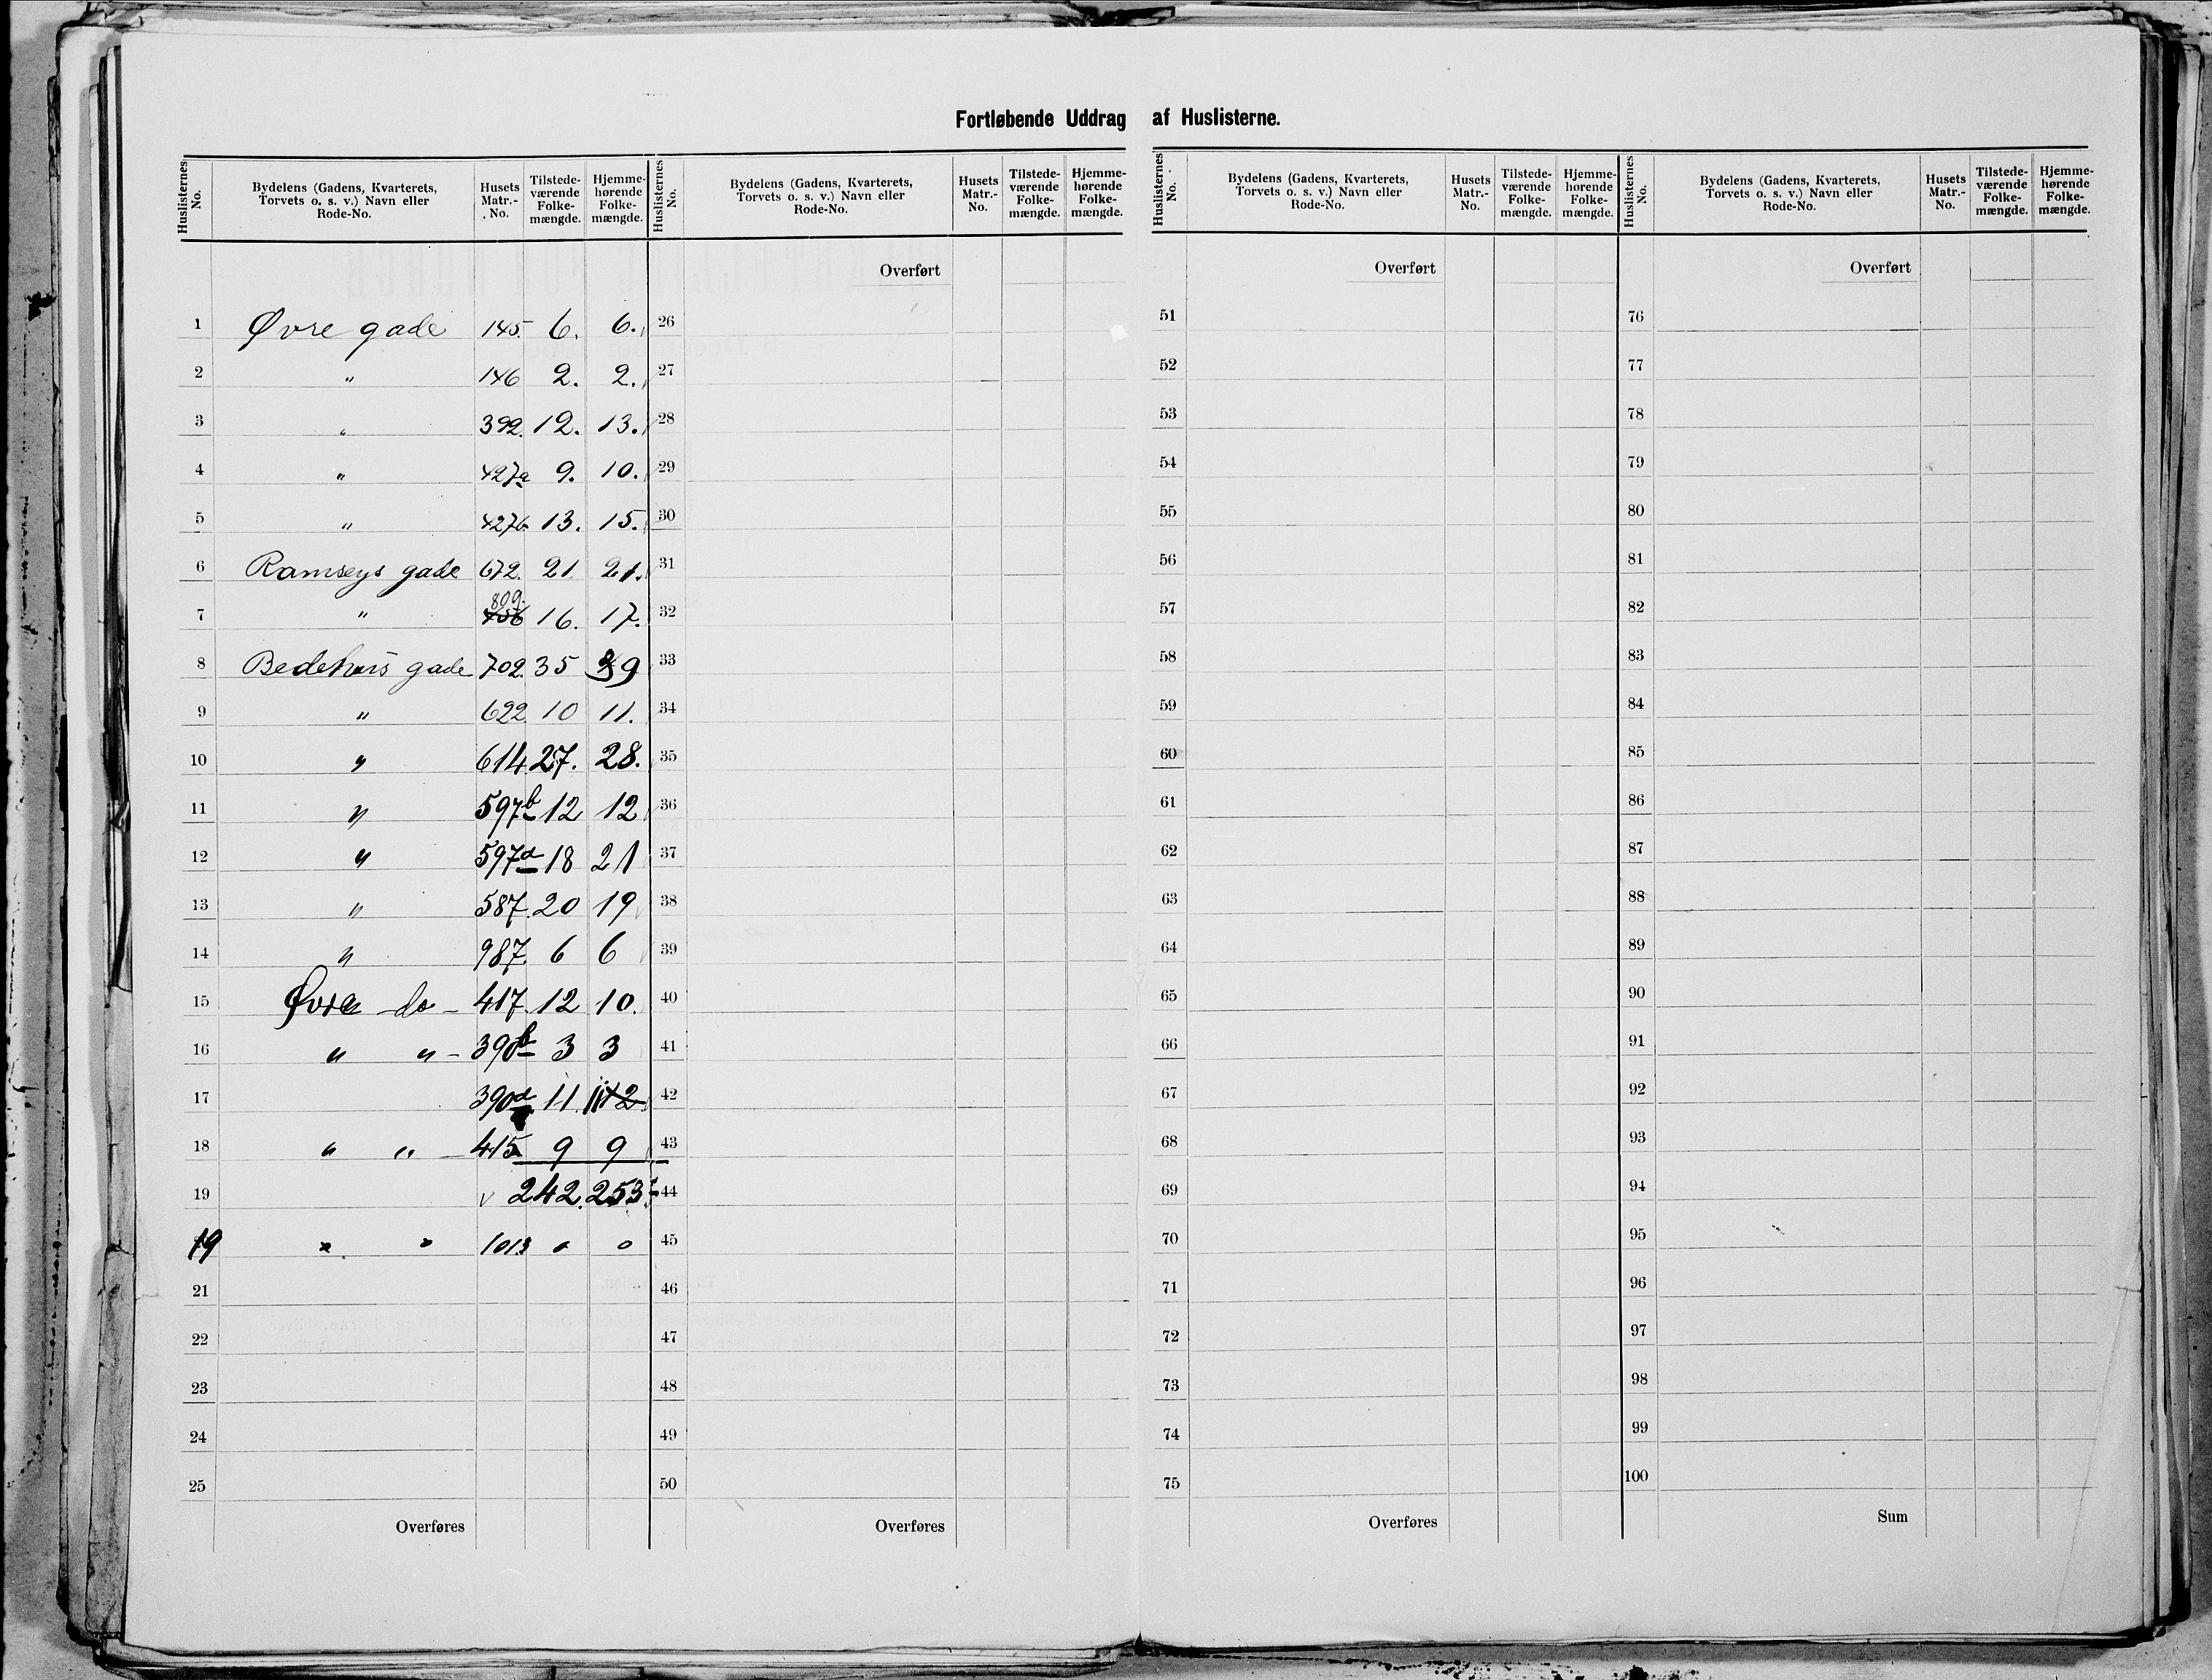 Fortløbende Uddrag af Huslisterne.
Huslisternes No. Bydelens (Gadens, Kvarterets, Torvets o. s. v.) Navn eller Rode-No. Husets Matr.-No. Tilstede-værende Folke-mængde. Hjemme-hørende Folke-mængde.
1 Øvre gade 145. 6. 6.
2 " 146 2. 2.
3 " 392. 12. 13.
4 " 427a 9. 10.
5 " 427b 13. 15.
6 Ramseys gade 672. 21 21.
7 " 809. 16. 17.
8 Bedehus gade 702. 35 39
9 " 622 10 11.
10 " 614 27. 28.
11 " 597b 12 12
12 " 597a 18 21
13 " 587. 20 19
14 " 987. 6 6
15 Øvre do - 417. 12 10.
16 " " - 390b 3 3
17 390a 11 11 12
18 " " - 415 9 9
19 242. 253.
19 " " 1013 0 0
21
22
23
24
25
Overføres
Huslisternes No. Bydelens (Gadens, Kvarterets, Torvets o. s. v.) Navn eller Rode-No. Husets Matr.-No. Tilstede-værende Folke-mængde. Hjemme-hørende Folke-mængde.
Overført
26
27
28
29
30
31
32
33
34
35
36
37
38
39
40
41
42
43
44
45
46
47
48
49
50
Overføres
Huslisternes No. Bydelens (Gadens, Kvarterets, Torvets o. s. v.) Navn eller Rode-No. Husets Matr.-No. Tilstede-værende Folke-mængde. Hjemme-hørende Folke-mængde.
Overført
51
52
53
54
55
56
57
58
59
60
61
62
63
64
65
66
67
68
69
70
71
72
73
74
75
Overføres
Huslisternes No. Bydelens (Gadens, Kvarterets, Torvets o. s. v.) Navn eller Rode-No. Husets Matr.-No. Tilstede-værende Folke-mængde. Hjemme-hørende Folke-mængde.
Overført
76
77
78
79
80
81
82
83
84
85
86
87
88
89
90
91
92
93
94
95
96
97
98
99
100
Sum